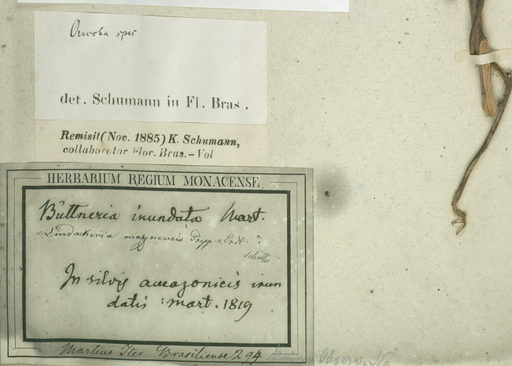 Oncoba spec
det. Schumann in Fl. Bras.
Remisit (Nov. 1885) K. Schumann,
collaborator Flor. Bras. – Vol
HERBARIUM REGIUM MONACENSE
Büttneria inundata Mart.
Lindackeria maynensis Poepp. & Endl. ?
In silvis amazonicis inun
datis : mart. 1819
Martius Iter Brasiliense 294